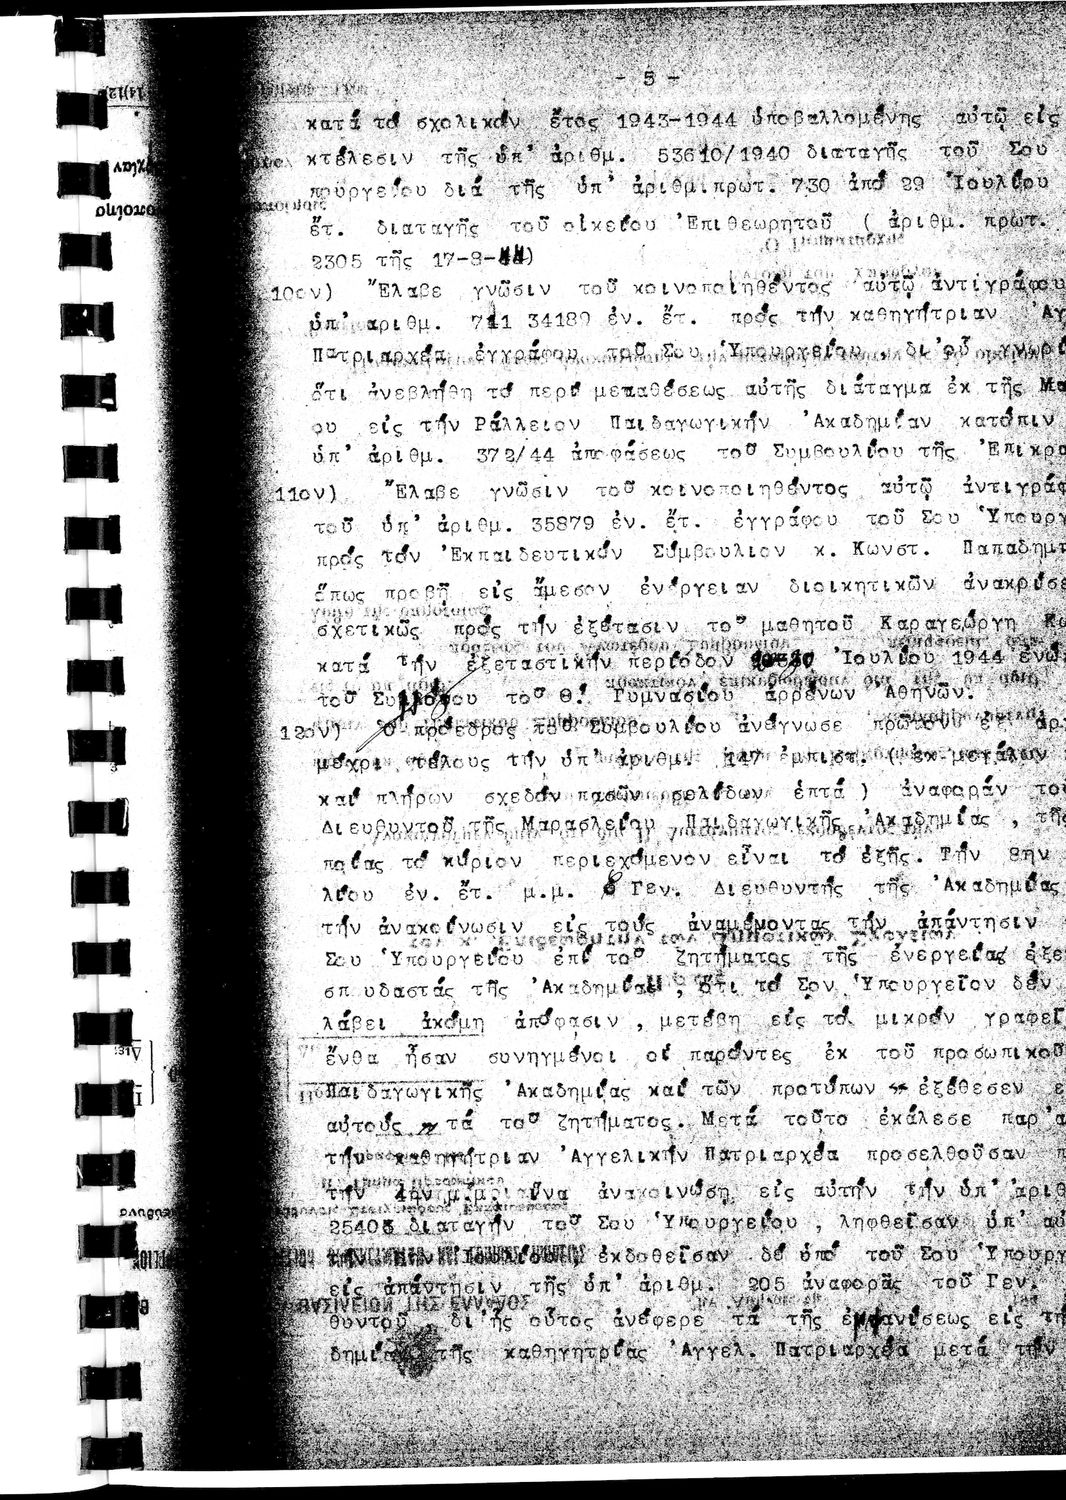 - 5 -
κατά τό σχολικόν ἔτος 1943-1944 ὑποβαλλομένης αὐτῷ εἰς
κτέλεσιν τῆς ὑπ' ἀριθμ. 53610/1940 διαταγῆς τοῦ Σου
πουργείου διά τῆς ὑπ' ἀριθμ.πρωτ. 730 ἀπό 29 Ἰουλίου
ἔτ. διαταγῆς τοῦ οἰκείου Ἐπιθεωρητοῦ ( ἀριθμ. πρωτ.
2305 τῆς 17-8-44)
10ον) Ἔλαβε γνῶσιν τοῦ κοινοποιηθέντος αὐτῷ ἀντιγράφου
ὑπ' αριθμ. 711 34189 ἐν. ἔτ. πρός τήν καθηγήτριαν Ἀγ
Πατριαρχέα ἐγγράφου τοῦ Σου Ὑπουργείου , δι'οὗ γνωρί
ὅτι ἀνεβλήθη τό περί μεταθέσεως αὐτῆς διάταγμα ἐκ τῆς Μα
ου εἰς τήν Ράλλειον Παιδαγωγικήν Ἀκαδημίαν κατόπιν
ὑπ' ἀριθμ. 372/44 ἀποφάσεως τοῦ Συμβουλίου τῆς Ἐπικρα
11ον) Ἔλαβε γνῶσιν τοῦ κοινοποιηθέντος αὐτῷ ἀντιγράφ
τοῦ ὑπ' ἀριθμ. 35879 ἐν. ἔτ. ἐγγράφου τοῦ Σου Ὑπουργ
πρός τόν Ἐκπαιδευτικόν Σύμβουλον κ. Κωνστ. Παπαδημτ
ὅπως προβῇ εἰς ἄμεσον ἐνέργειαν διοικητικῶν ἀνακρίσε
σχετικῶς πρός τήν ἐξέτασιν τοῦ μαθητοῦ Καραγεώργη Κω
κατά τήν ἐξεταστικήν περίοδον Ἰουλίου 1944 ἐνώ
τοῦ Συλλόγου τοῦ Θ! Γυμνασίου ἀρρένων Ἀθηνῶν.
12ον) Ὁ πρόεδρος τοῦ Συμβουλίου ἀνέγνωσε πρῶτον ἐξ ἀρ
μέχρι τέλους τήν ὑπ' ἀριθμ. 147 ἐμπιστ. ( ἐκ μεγάλων
καί πλήρων σχεδόν πασῶν σελίδων ἑπτά ) ἀναφοράν τοῦ
Διευθυντοῦ τῆς Μαρασλείου Παιδαγωγικῆς Ἀκαδημίας , τῆς
ποίας τό κύριον περιεχόμενον εἶναι τό ἑξῆς. Τήν 8ην
λίου ἐν. ἔτ. μ.μ. ὁ Γεν. Διευθυντής τῆς Ἀκαδημίας
τήν ἀνακοίνωσιν εἰς τούς ἀναμένοντας τήν ἀπάντησιν
Σου Ὑπουργείου ἐπί τοῦ ζητήματος τῆς ἐνεργείας ἐξε
σπουδαστάς τῆς Ἀκαδημίας , ὅτι τό Σον Ὑπουργεῖον δέν
λάβει ἀκόμη ἀπόφασιν , μετέβη εἰς τό μικρόν γραφεῖ
ἔνθα ἦσαν συνηγμένοι οἱ παρόντες ἐκ τοῦ προσωπικοῦ
Παιδαγωγικῆς Ἀκαδημίας καί τῶν προτύπων ἐξέθεσεν ε
αὐτούς τά τοῦ ζητήματος. Μετά τοῦτο ἐκάλεσε παρ'α
τήν καθηγήτριαν Ἀγγελικήν Πατριαρχέα προσελθοῦσαν π
τήν ἀνακοινώσῃ εἰς αὐτήν τήν ὑπ' ἀριθ
25405 διαταγήν τοῦ Σου Ὑπουργείου , ληφθεῖσαν ὑπ' αὐ
ἐκδοθεῖσαν δέ ὑπό τοῦ Σου Ὑπουργ
εἰς ἀπάντησιν τῆς ὑπ' ἀριθμ. 205 ἀναφορᾶς τοῦ Γεν.
θυντοῦ , δι'ἧς οὗτος ἀνέφερε τά τῆς ἐμφανίσεως εἰς τή
δημία τῆς καθηγητρίας Ἀγγελ. Πατριαρχέα μετά τήν